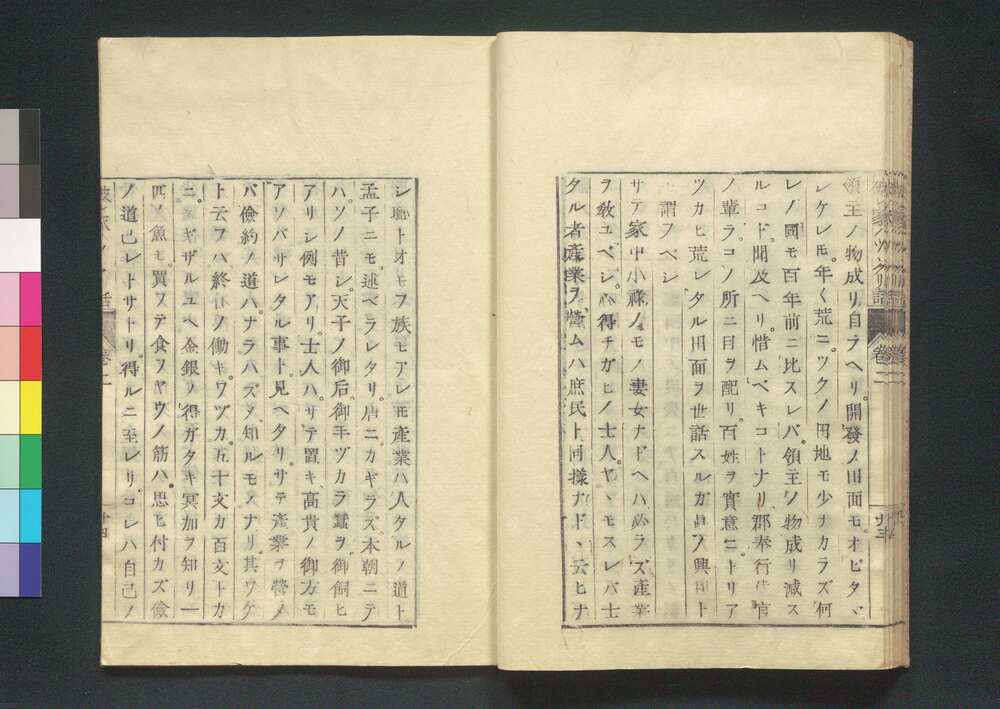 領主ノ物成リ自ラヘリ。開發ノ田面モ。オビタヾ
レケレモ。年く荒ニツクノ田地モ少ナカラズ何
レノ國モ百年前ニ比スレバ。領主ノ物成リ減ス
ルコト。聞及ベリ。惜ムベキコトナリ。郡奉行代官
ノ輩ラ。コノ所ニ目ヲ配リ。百姓ヲ實意ニトリア
ツカヒ荒レタル田面ヲ世話スルガ。昌ヘ興ルト
謂フベシ
サテ家中小祿ノモノ妻女ナドヘハ。必ラズ産業
ヲ敎ユベシ。心得チガヒノ士人。ヤヽモスレバ士
タル者産業ヲ。營ムハ庶民ト同樣ナドヽ云ヒナ
シ恥トオモフ族モアレモ産業ハ人タルノ道ト
孟子ニモ。述ベラレタリ。唐ニカギラズ。本朝ニテ
ハ。ソノ昔シ。天子ノ御后。御手ヅカラ蠶ヲ御飼ヒ
アリシ例モアリ。士人ハ。サテ置キ。高貴ノ御方モ
アソバサレタル事ト。見ヘタリ。サテ産業ヲ營メ
バ儉約ノ道ハ。ナラハズメ知ルモノナリ。其ワケ
ト云フハ終日ノ働キ。ワヅカ。五十文カ百文トカ
ニ。スギザルユヘ金銀ノ得ガタキ冥加ヲ知リ一
匹ノ魚モ。買フテ食フヤウノ筋ハ。思ヒ付カズ儉
ノ道己レトサトリ。得ルニ至レリ。コレハ自己ノ
卷二
廿三
卷二
廿四